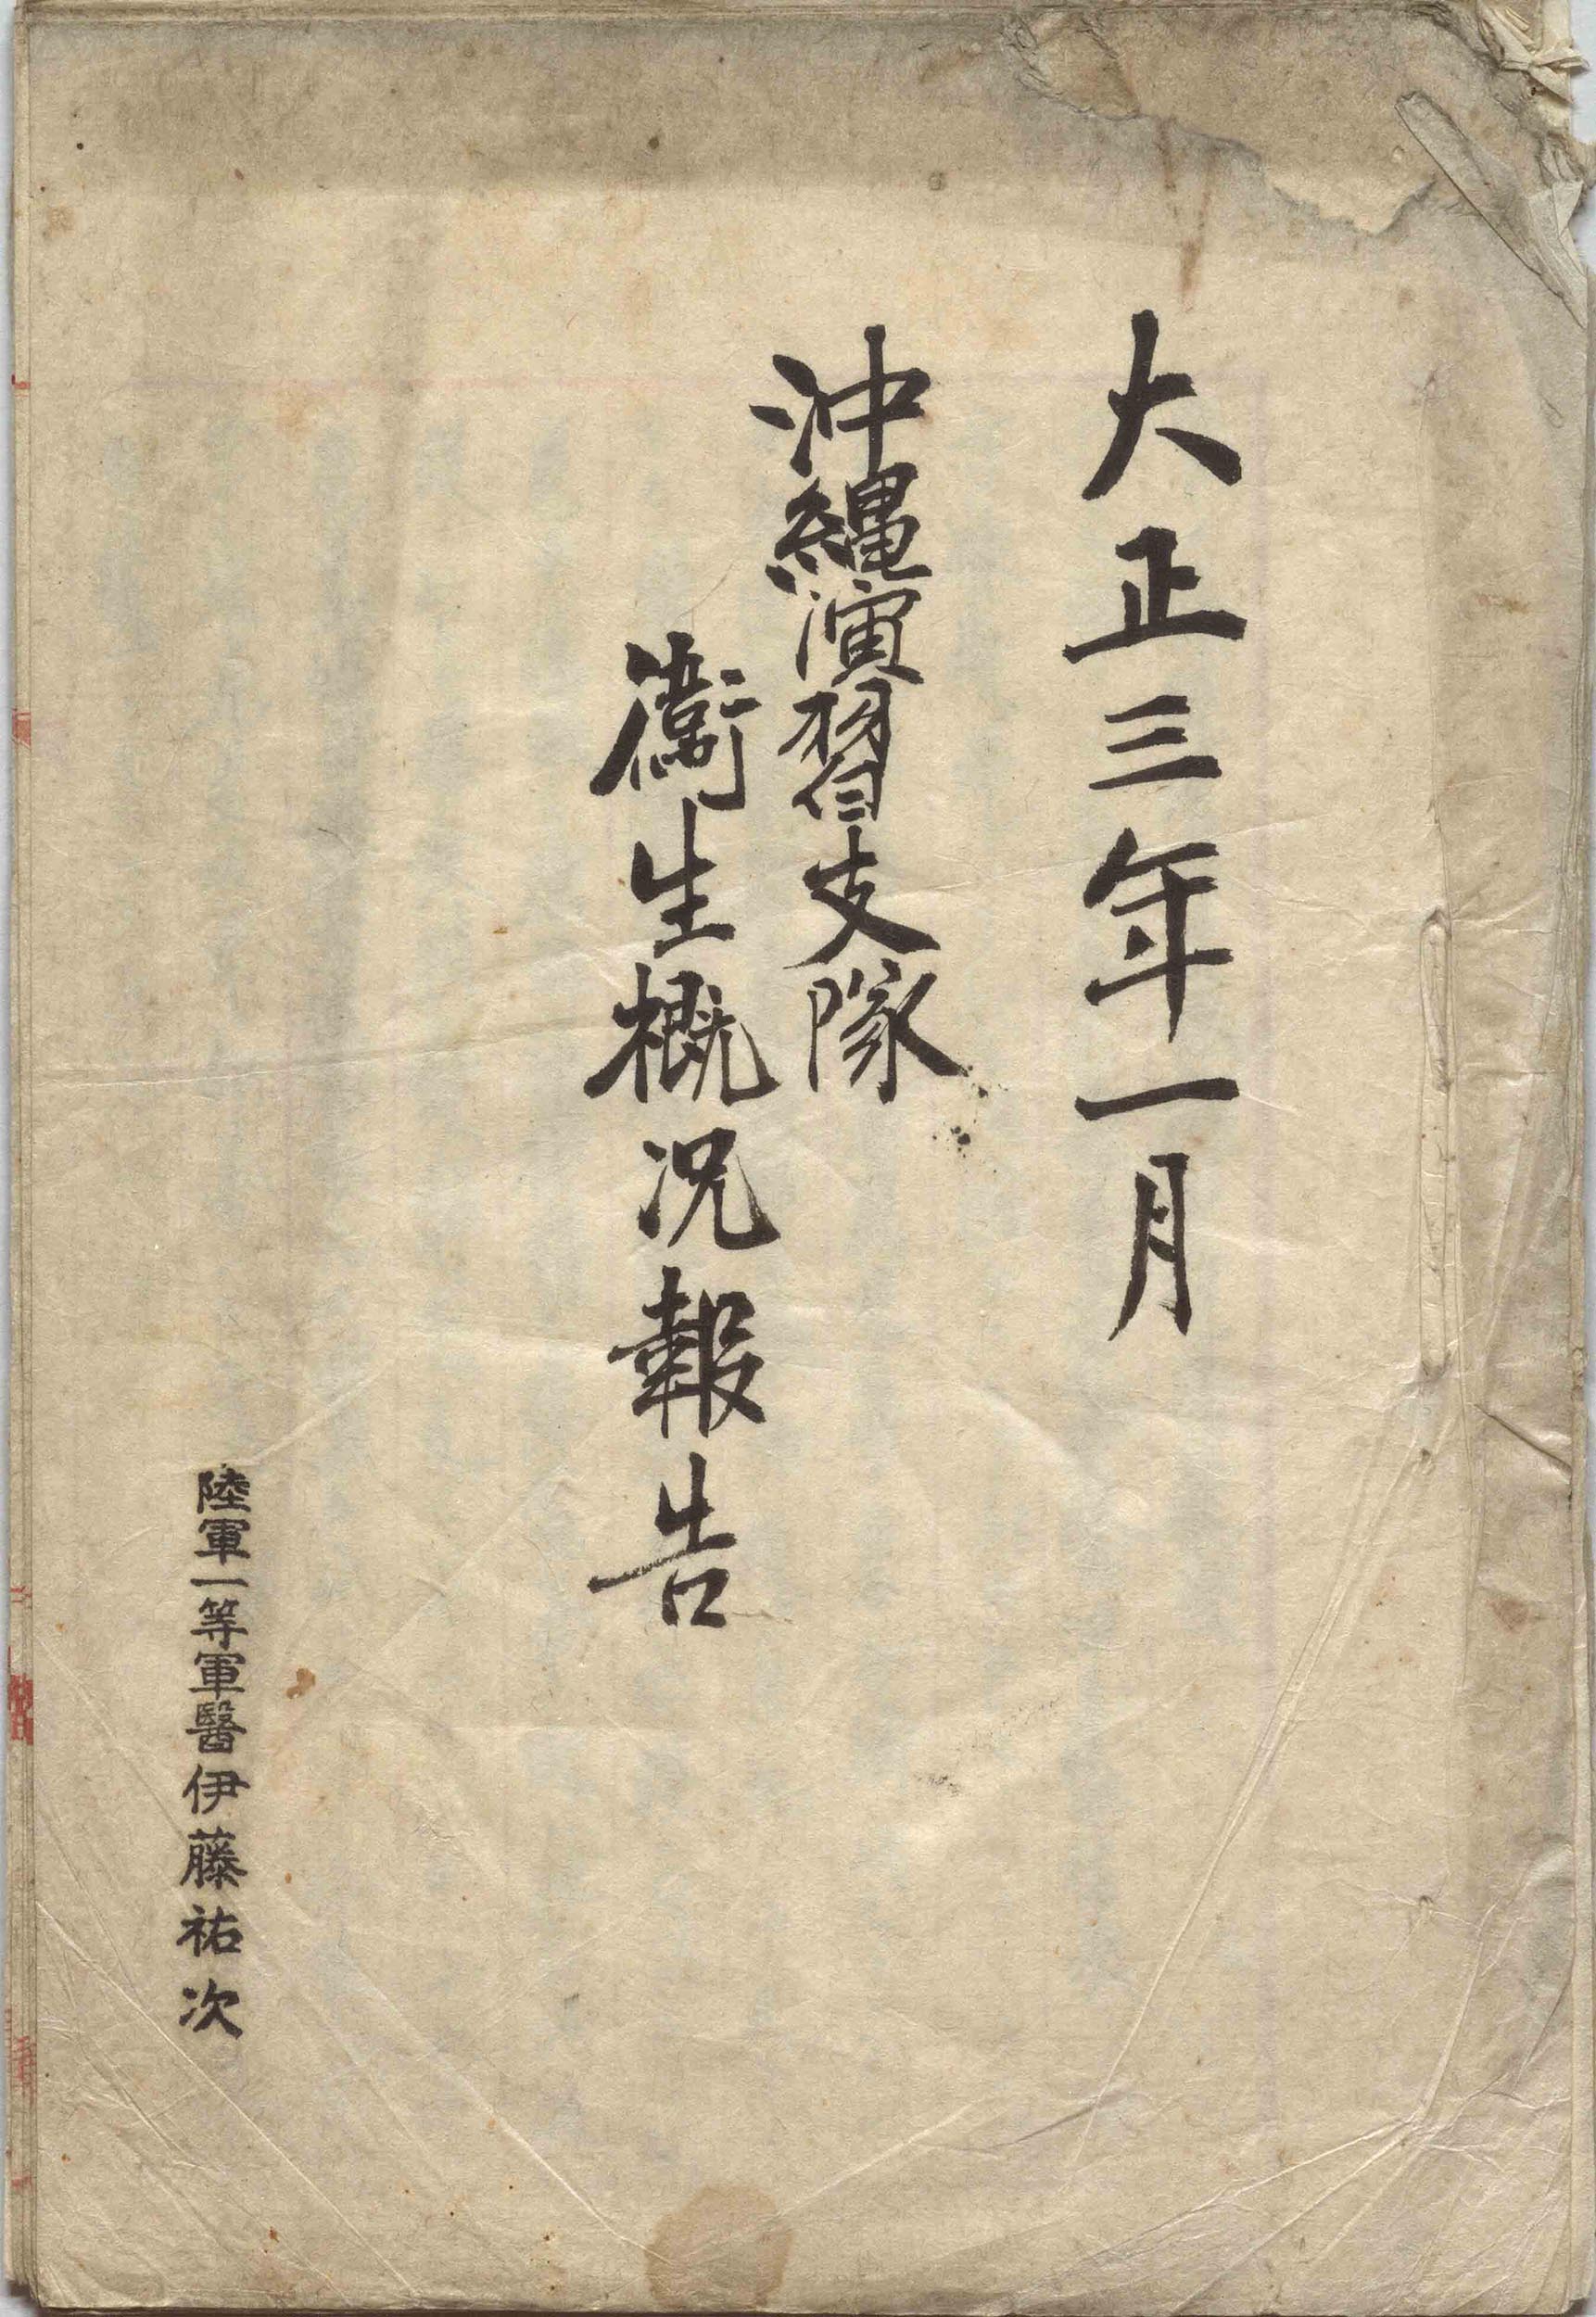 大正三年一月
沖縄演習支隊
衞生概况報告
陸軍一等軍醫伊藤祐次